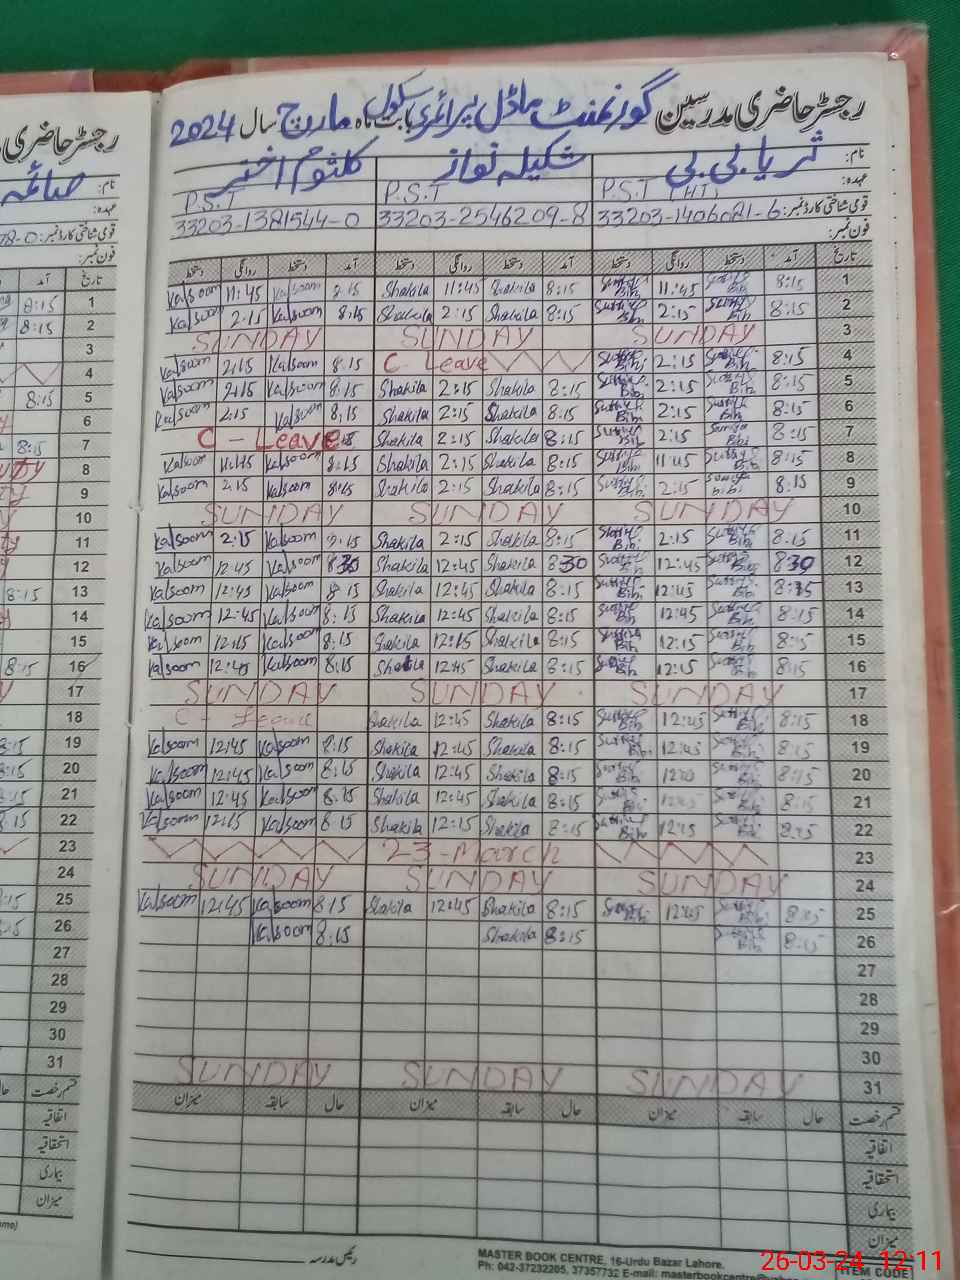 رجسٹر حاضری مدرسین گورنمنٹ ماڈل پرائمری سکول بابت ماہ مارچ سال 2024
نام: ثریا بی بی شکیلہ نواز کلثوم اختر
عہدہ: P.S.T (HT) P.S.T P.S.T
قومی شناختی کارڈ نمبر: 33203-1406021-6 33203-2546209-8 33203-1381544-0
فون نمبر:
تاریخ آمد دستخط روانگی دستخط آمد دستخط روانگی دستخط آمد دستخط روانگی دستخط
Kalsoom 11:45 Kalsoom 8:15 Shakila 11:45 Shakila 8:15 Bibi 11:45 Bibi 8:15 1
Kalsoom 2:15 Kalsoom 8:15 Shakila 2:15 Shakila 8:15 Bibi 2:15 Bibi 8:15 2
SUNDAY SUNDAY SUNDAY 3
Kalsoom 2:15 Kalsoom 8:15 C Leave Bibi 2:15 Bibi 8:15 4
Kalsoom 2:15 Kalsoom 8:15 Shakila 2:15 Shakila 8:15 Bibi 2:15 Bibi 8:15 5
Kalsoom 2:15 Kalsoom 8:15 Shakila 2:15 Shakila 8:15 Bibi 2:15 Bibi 8:15 6
C - Leave Shakila 2:15 Shakila 8:15 Bibi 2:15 Bibi 8:15 7
Kalsoom 11:45 Kalsoom 8:15 Shakila 2:15 Shakila 8:15 Bibi 11:45 Bibi 8:15 8
Kalsoom 2:15 Kalsoom 8:15 Shakila 2:15 Shakila 8:15 Bibi 2:15 bibi 8:15 9
SUNDAY SUNDAY SUNDAY 10
Kalsoom 2:15 Kalsoom 8:15 Shakila 2:15 Shakila 8:15 Bibi 2:15 Bibi 8:15 11
Kalsoom 12:45 Kalsoom 8:30 Shakila 12:45 Shakila 8:30 Bibi 12:45 Bibi 8:30 12
Kalsoom 12:45 Kalsoom 8:15 Shakila 12:45 Shakila 8:15 Bibi 12:45 Bibi 8:15 13
Kalsoom 12:45 Kalsoom 8:15 Shakila 12:45 Shakila 8:15 Bibi 12:45 Bibi 8:15 14
Kalsoom 12:15 Kalsoom 8:15 Shakila 12:15 Shakila 8:15 Bibi 12:15 Bibi 8:15 15
Kalsoom 12:45 Kalsoom 8:15 Shakila 12:45 Shakila 8:15 Bibi 12:15 Bibi 8:15 16
SUNDAY SUNDAY SUNDAY 17
C - Leave Shakila 12:45 Shakila 8:15 Bibi 12:45 Bibi 8:15 18
Kalsoom 12:45 Kalsoom 8:15 Shakila 12:45 Shakila 8:15 Bibi 12:45 Bibi 8:15 19
Kalsoom 12:45 Kalsoom 8:15 Shakila 12:45 Shakila 8:15 Bibi Bibi 8:15 20
Kalsoom 12:45 Kalsoom 8:15 Shakila 12:45 Shakila 8:15 Bibi 12:45 Bibi 8:15 21
Kalsoom 12:15 Kalsoom 8:15 Shakila 12:15 Shakila 8:15 Bibi 12:15 Bibi 8:15 22
23-March 23
SUNDAY SUNDAY SUNDAY 24
Kalsoom 12:45 Kalsoom 8:15 Shakila 12:45 Shakila 8:15 12:45 Bibi 8:15 25
Kalsoom 8:15 Shakila 8:15 Bibi 8:15 26
27
28
29
30
SUNDAY SUNDAY SUNDAY 31
قسم رخصت حال سابقہ میزان حال سابقہ میزان حال سابقہ میزان
اتفاقیہ
استحقاقیہ
بیماری
میزان
رئیس مدرسہ
MASTER BOOK CENTRE, 16-Urdu Bazar Lahore.
Ph: 042-37232205, 37357732 E-mail:
ITEM CODE
26-03-24 12:11
رجسٹر حاضری
نام: صائمہ
عہدہ:
قومی شناختی کارڈ نمبر:
فون نمبر:
تاریخ آمد
8:15 1
8:15 2
3
4
8:15 5
6
8:15 7
8
9
10
11
12
8:15 13
14
15
8:15 16
17
18
8:15 19
8:15 20
8:15 21
8:15 22
23
24
25
26
27
28
29
30
31
قسم رخصت حال
اتفاقیہ
استحقاقیہ
بیماری
میزان